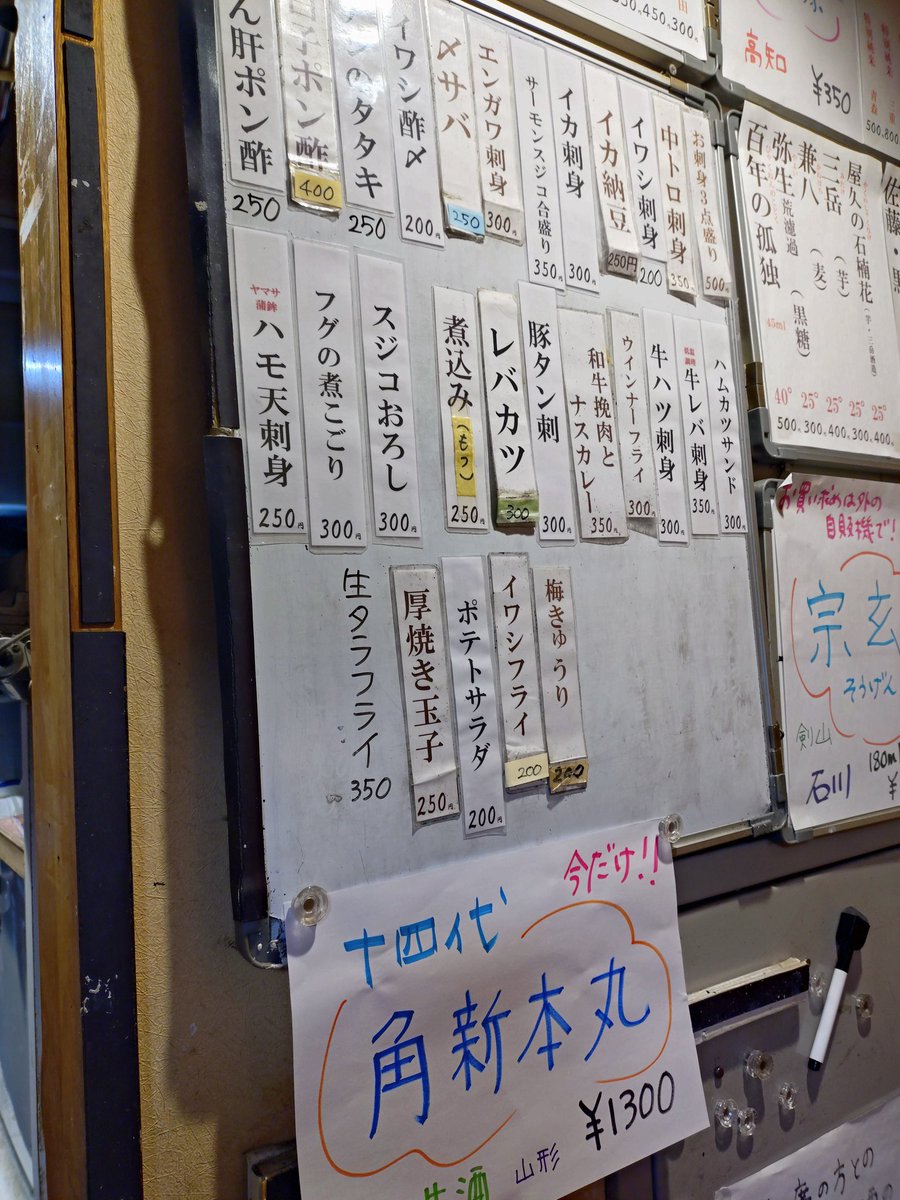 お刺身3点盛り 500
中トロ刺身 350円
イワシ刺身 200
イカ納豆 250円
イカ刺身 300円
サーモンスジコ合盛り 350円
エンガワ刺身 300円
〆サバ 250
イワシ酢〆 200円
のタタキ 250
子ポン酢 400
ん肝ポン酢 250
ハムカツサンド 300円
低温調理 牛レバ刺身 350円
牛ハツ刺身 300円
ウインナーフライ 300円
和牛挽肉とナスカレー 350円
豚タン刺 300円
レバカツ 300
煮込み(もつ) 250円
スジコおろし 300円
フグの煮こごり 300円
ヤマサ蒲鉾 ハモ天刺身 250円
梅きゅうり 200
イワシフライ 200
ポテトサラダ 200円
厚焼き玉子 250円
生タラフライ 350
今だけ!!
十四代
角新本丸
¥1300
生酒 山形
高知
¥350
佐藤・黒
屋久の石楠花(芋・三岳酒造)
三岳(芋)
兼八(麦)
弥生荒濾過(黒糖)
百年の孤独
45ml
40° 25° 25° 25° 25°
500円 300円 400円 300円 400円
お買いだめは外の
自販機で!
宗玄
そうげん
剣山
石川
180ml